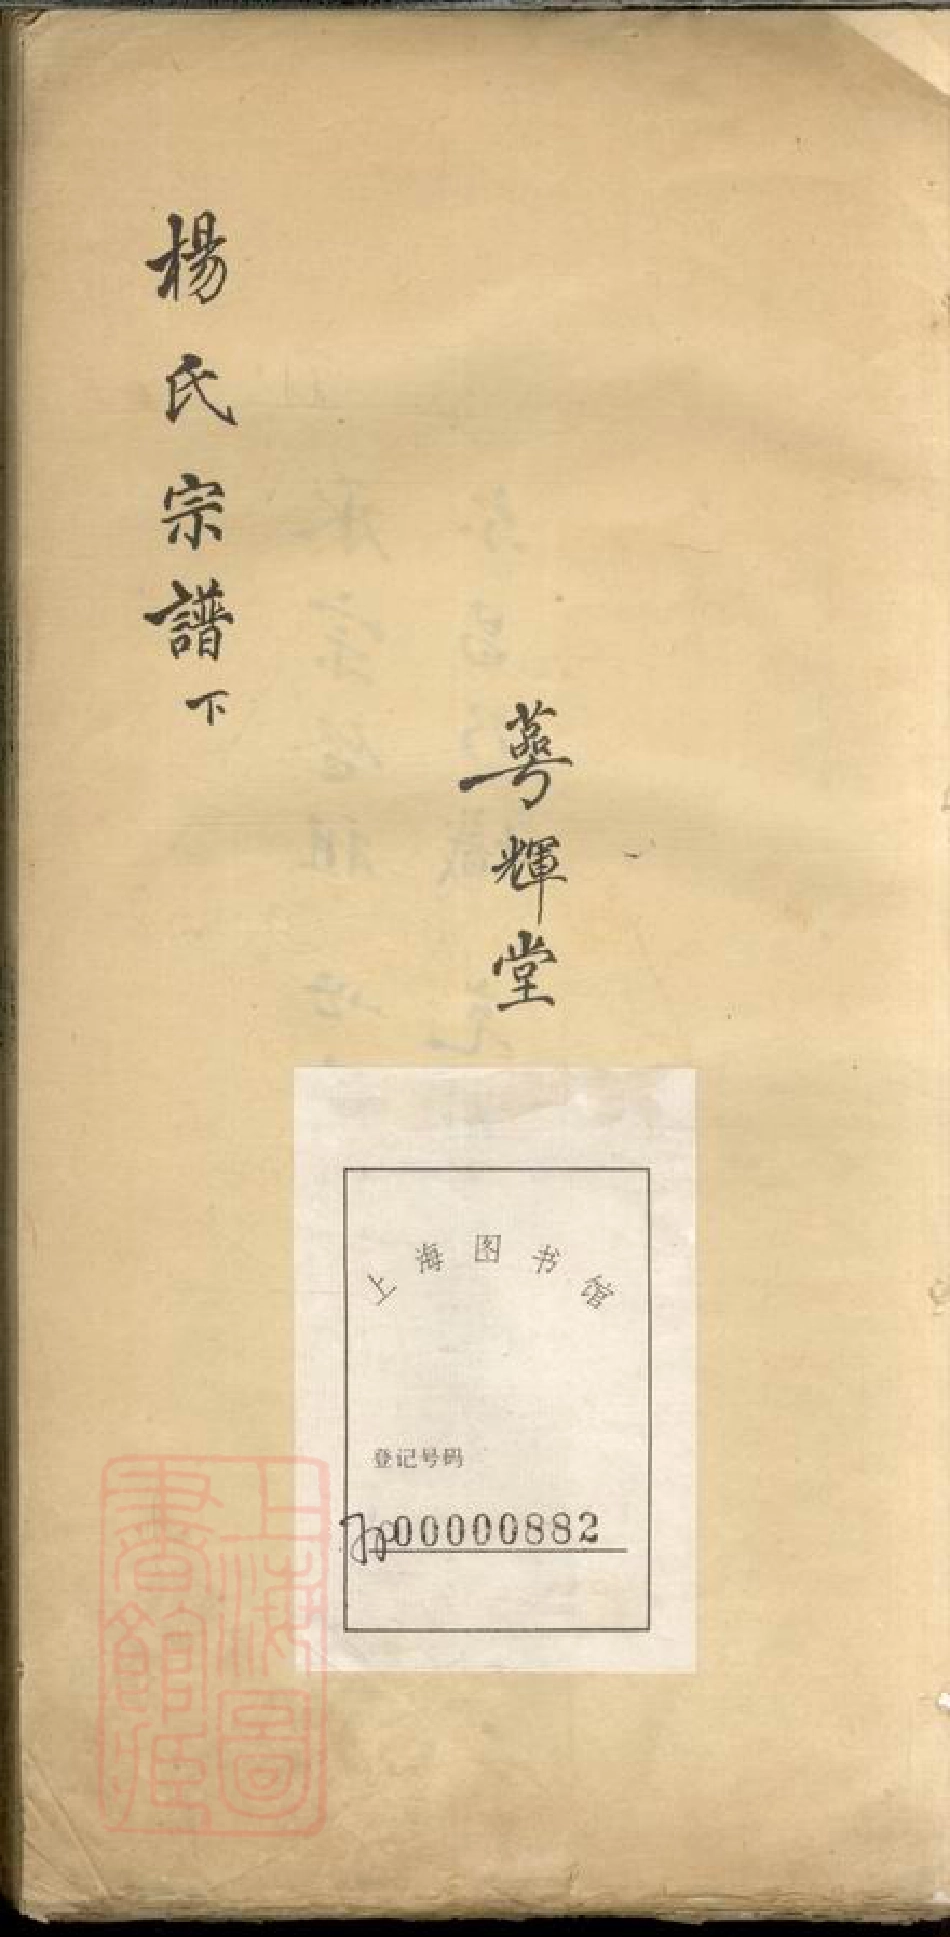 楊氏宗譜下
萼輝堂
上海图书馆
登记号码
00000882
上海圖
書館藏